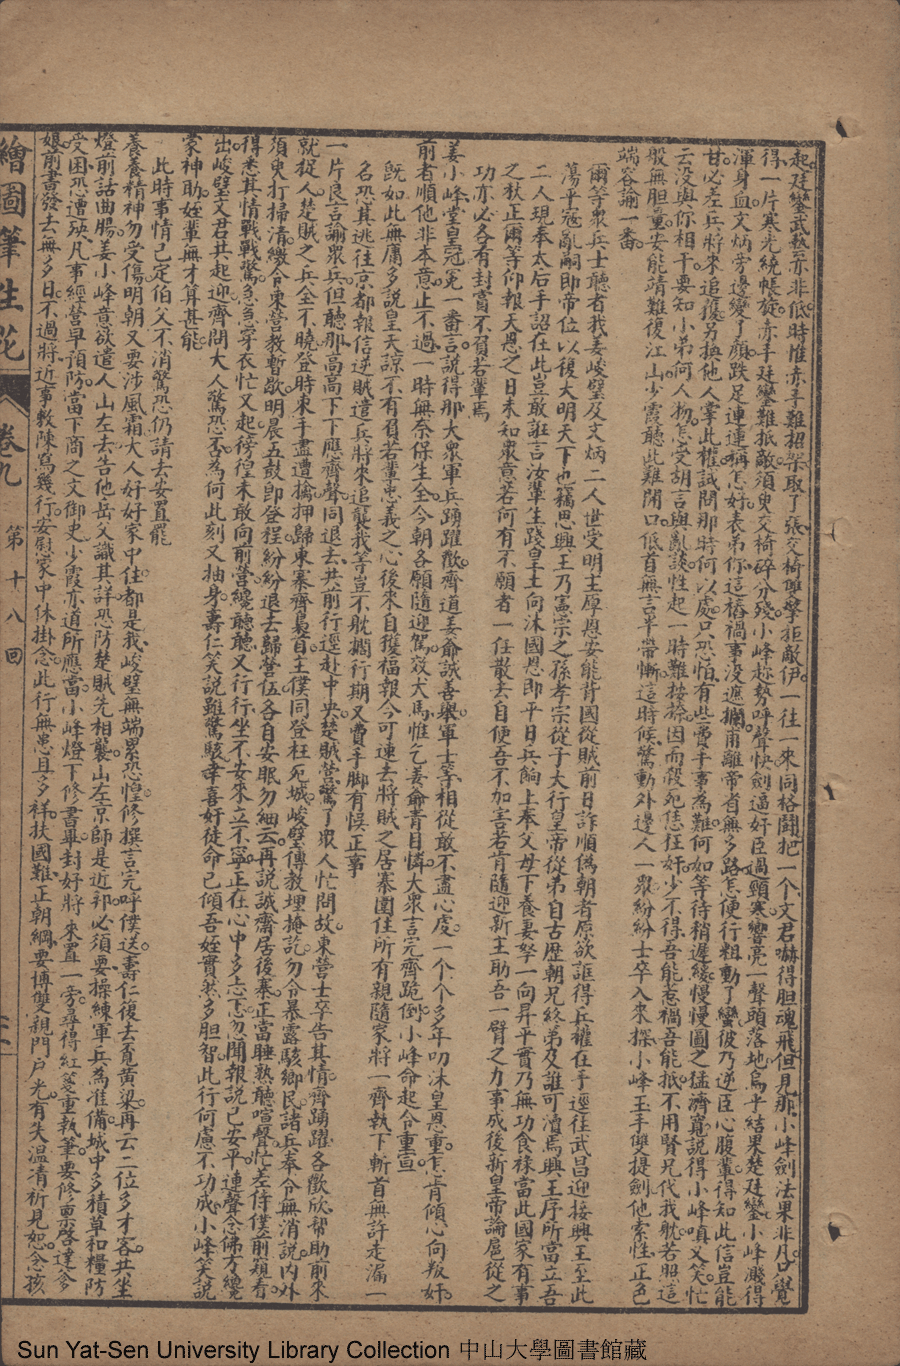 起廷鸞武藝亦非低時惟赤手難招架取了張交椅雙擎拒敵伊一往一來同格鬪把一个文君嚇得胆魂飛但見那小峰劍法果非凡只覺
得一片寒光繞帳旋赤手廷鸞難抵敵須臾交椅碎分殘小峰趁勢呼聲快劍逼奸臣過頸寒響亮一聲頭落地烏乎結果楚廷鸞小峰濺得
渾身血文炳旁邊變了顏跌足連連稱怎好表弟你這樁禍事沒遮攔甫離帝者無多路怎便行粗動了蠻彼乃逆臣心腹輩得知此信豈能
甘必差兵將來追獲另換他人掌此權試問那時何以處只恐怕有些賣手事為難何如等待稍遲緩慢慢圖之猛濟寬說得小峰嗔又笑忙
云沒與你相干要知小弟何人物怎受胡言與亂談性起一時難按捺因而殺死恁狂奸少不得吾能惹禍吾能抵不用賢兄代我躭若照這
般無胆量安能靖難復江山少霞聽此難開口低首無言半帶慚這時候驚動外邊人一眾紛紛士卒入來探小峰玉手雙提劍他索性正色
端容諭一番
爾等眾兵士聽者我姜峻璧及文炳二人世受明主厚恩安能背國從賊前日詐順偽朝者原欲誑得兵權在手逕往武昌迎接興王至此
蕩平寇亂嗣即帝位以復大明天下也竊思興王乃憲宗之孫孝宗從子大行皇帝從弟自古歷朝兄終弟及誰可瀆焉興王序所當立吾
二人現奉太后手詔在此豈敢誑言汝輩生踐皇土向沐國恩即平日兵餉上奉父母下養妻孥一向昇平實乃無功食祿當此國家有事
之秋正爾等仰報天恩之日未知眾意若何有不願者一任散去自便吾不加害若肯隨迎新王助吾一臂之力事成後新皇帝論扈從之
功亦必各有封賞不負若輩焉
姜小峰堂皇冠冕一番言說得那大眾軍兵踴躍歡齊道姜爺誠善舉軍士等相從敢不盡心虔一个个多年叨沐皇恩重怎肯傾心向叛奸
前者順他非本意止不過一時無奈保生全今朝各願隨迎駕效犬馬惟乞姜爺青目憐大眾言完齊跪倒小峰命起令重宣
既如此無庸多說皇天諒不有負若輩忠義之心後來自獲福報今可速去將賊之居寨圍住所有親隨家將一齊執下斬首無許走漏一
名恐其逃往京都報信逆賊遣兵將來追襲我等豈不躭擱行期又費手脚有悞正事
一片良言諭眾兵但聽那高高下下應齊聲同退去共前行逕赴中央楚賊營驚了眾人忙問故東營士卒告其情齊踴躍各歡欣帮助前來
就捉人楚賊之兵全不曉登時束手盡遭擒押歸東寨齊梟首主僕同登枉死城峻璧傳教埋掩訖勿令暴露駭鄉民諸兵奉令無消說內外
須臾打掃清繳令東營教暫歇明晨五鼓即登程紛紛退去歸營伍各自安眠勿細云再說誠齋居後寨正當睡熟聽喧聲忙差侍僕前窺看
得悉其情戰戰驚急急穿衣忙又起徬徨未敢向前營纔聽聽又行行坐不安來立不寧正在心中多忐忑忽聞報說已安平連聲念佛方纔
出峻璧文君共起迎齊問大人驚恐否為何此刻又抽身壽仁笑說雖驚駭幸喜奸徒命已傾吾姪實然多胆智此行何慮不功成小峰笑說
蒙神助姪輩無才算甚能
此時事情已定伯父不消驚恐仍請去安置罷
養養精神勿受傷明朝又要涉風霜大人好好家中住都是我峻璧無端累恐惶修撰言完呼僕送壽仁復去覓黃梁再云二位多才客共坐
燈前話曲腸姜小峰意欲遣人山左去告他岳父識其詳恐防楚賊先相襲山左京師是近邦必須要操練軍兵為准備城中多積草和糧防
受困恐遭殃凡事經營早預防當下商之文御史少霞亦道所應當小峰燈下修書畢封好將來置一旁尋得紅箋重執筆要修票啓達爹
娘前書發去無多日不過將近事敷陳寫幾行安慰家中休掛念此行無患且多祥扶國難正朝綱要博雙親門戶光有失溫清祈見恕念孩
繪圖筆生花 卷九 第十八回
Sun Yat-Sen University Library Collection 中山大學圖書館藏